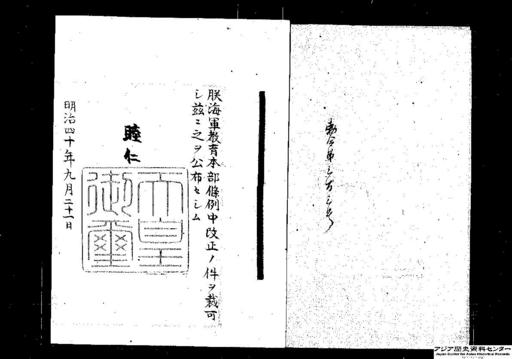 勅令第三百三号
朕海軍教育本部條例中改正ノ件ヲ裁可
シ茲ニ之ヲ公布セシム
睦仁
天皇御璽
明治四十年九月二十一日
アジア歴史資料センター
Japan Center for Asian Historical Records